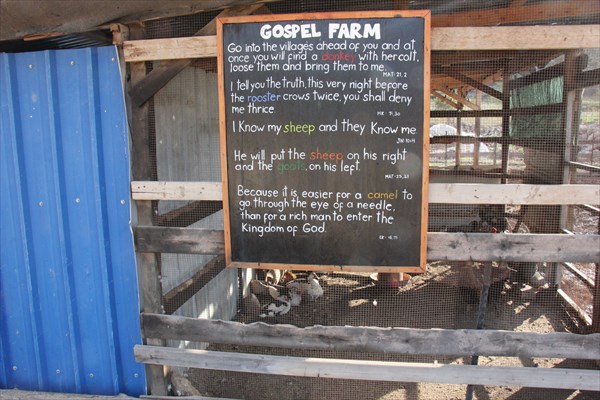 GOSPEL FARM
Go into the villages ahead of you and at
once you will find a donkey with her colt,
loose them and bring them to me.
MAT-21:2
I tell you the truth, this very night before
the rooster crows twice, you shall deny
me thrice.
I Know my sheep and they Know me.
He will put the sheep on his right
and the goats, on his left.
Because it is easier for a camel to
go through the eye of a needle,
than for a rich man to enter the
Kingdom of God.